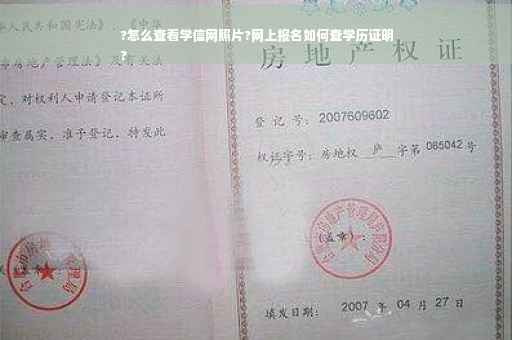 ?怎么查看学信网照片?网上报名如何查学历证明
?
民共和国宪法》、《中华
房地产管理法》及有关法
定，对权利人申请登记本证所
审查属实，准予登记，特发此
房地产权证
登记号：2007609602
权证字号：房地权 庐 字第 085042 号
房地产管理局
（盖章）：
填发日期：2007 年 04 月 27 日